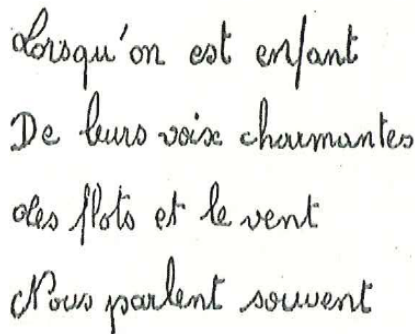 Lorsqu'on est enfant
De leurs voix charmantes
des flots et le vent
Nous parlent souvent